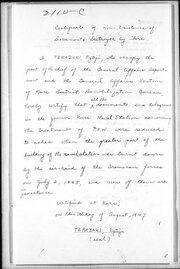 2110-C
Certificate of Non-Existence of
Documents, Destroyed by Fire
I, TERAZAKI, Ryūji, who occupy the
post of the Chief of the General Affairs Depart-
ment and the General Affairs Section
of Kure District Demobilization Bureau
hereby certify that all the documents and telegrams
in the former Kure Naval Station concerning
the treatment of P.O.W. were reduced
to ashes when the greater part of the
building of the naval station was burnt down
by the air-raid of the American forces
on July 2, 1945, and none of them are in
existence.
Certified at Kure,
on this day of August, 1947
TERAZAKI, Ryūji
(seal)